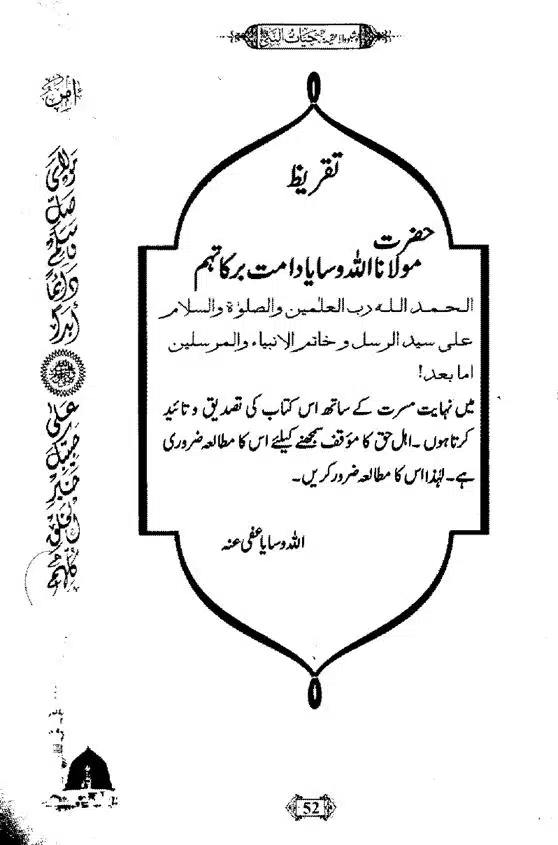 حیات النبی
تقریظ
حضرت
مولانا اللہ وسایا دامت برکاتہم
الحمد اللہ رب العلمین والصلوٰۃ والسلام
علی سید الرسل و خاتم الانبیاء والمرسلین
اما بعد!
میں نہایت مسرت کے ساتھ اس کتاب کی تصدیق و تائید
کرتا ہوں۔ اھل حق کا مؤقف سمجھنے کیلئے اس کا مطالعہ ضروری
ہے۔ لہٰذا اس کا مطالعہ ضرور کریں۔
اللہ وسایا عفی عنہ
مولای صل وسلم دائما أبدا
علی حبیبک خیر الخلق کلهم
52